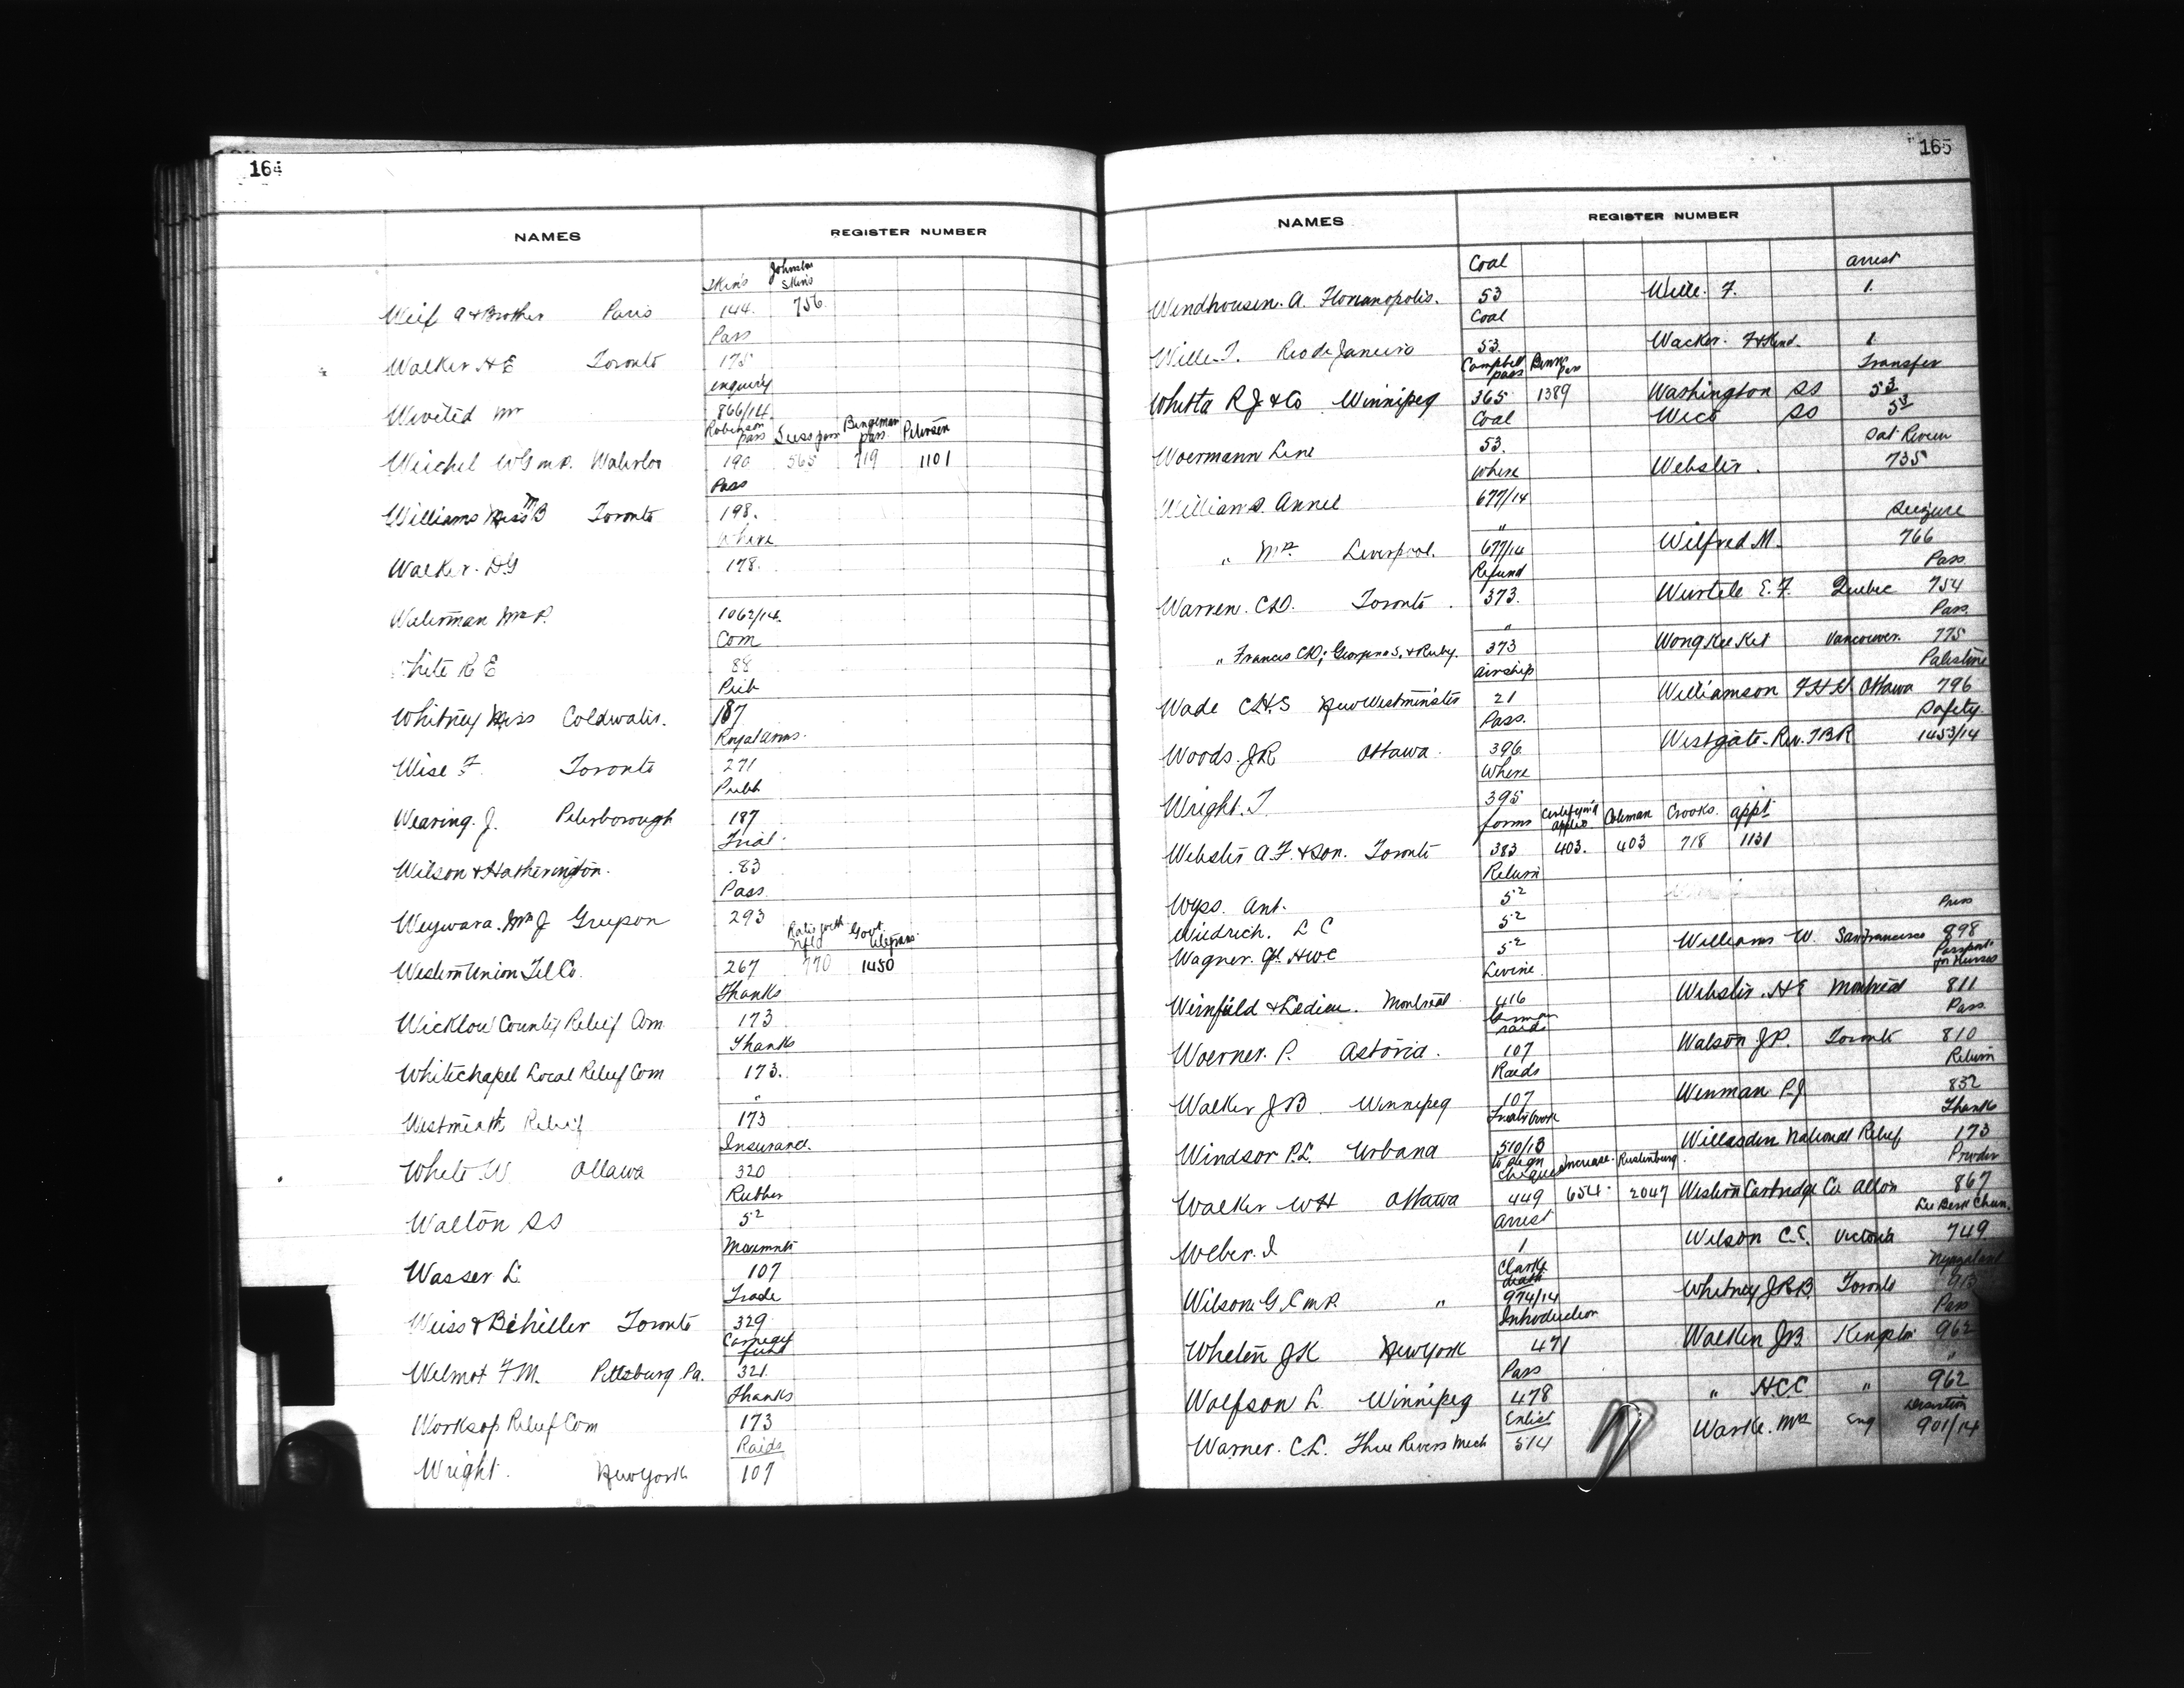 164
NAMES REGISTER NUMBER
Skins Johnston Skins
Weif A & Brother Paris 144. 756.
Pass
Walker H E Toronto 175
enquiry
Mr 866/14
Robinson pass Suess pass Bingeman pass Petersen
Weichel W G M.P. Waterloo 190 565 719 1101
Pass
Williams Miss M B Toronto 198.
Where
Walker. D G 178.
Waterman Mr P. 1062/14.
Com
White R E 88
Pub
Whitney Miss Coldwater. 187
Royal arms.
Wise F. Toronto 271
Pubn
Wearing. J. Peterborough 187
Trial.
Wilson & Hatherington. 83
Pass
Mr J 293
Rates with Nfld Govt. telegrams.
Western Union Tel Co. 267 770 1450
Thanks
Wicklow County Relief Com. 173
Thanks
Whitechapel Local Relief Com 173.
"
Westmeath Relief 173
Insurance.
White. W Ottawa 320
Rubber
Walton SS 52
Movements
Wasser L. 107
Trade
Weiss & Bchiller Toronto 329
Carnegie fund
Wilmot F. M. Pittsburg Pa. 321.
Thanks
Worksop Relief Com 173
Raids
Wright. New York 107
165
NAMES REGISTER NUMBER
Coal arrest
Wendhousen. A. Florianopolis. 53 Wille. F. 1.
Coal
Wille. T. Rio de Janeiro 53. Wacker. 1
Campbell pass pass Transfer
Whitta R J & Co Winnipeg 365 1389 Washington SS 53
Coal Wico SS 53
Woermann Line 53. Sat. Review
Where Webster. 735
Williams. Annie 677/14
" Seizure
" Mrs Liverpool. 677/14 Wilfred M. 766
Refund Pass
Warren. C D. Toronto. 373. Wurtele E. F. Quebec 754
" Pass.
" Francis C D; Georgina S. & Ruby. 373 Wong Kee Ket Vancouver. 775
airship Palestine
Wade C H. S New Westminster 21 Williamson F H H. Ottawa 796
Pass. Safety.
Woods. J R Ottawa. 396 Westgate. Rev. T B R 1453/14
Where
Wright. T. 395
forms Coleman Crooks. appt.
Webster A. F. & Son. Toronto 383 403. 403 718 1131
Return
Wyss. Ant. 52
Wiedrich. L C 52 Press
Wagner. H W C 52 Williams W. San Francisco 898
Levine. Passports for Nurses
Weinfield & Ledieu. Montreal 416 Webster. H E Montreal 811
German raids Pass
Woerner. P. Astoria. 107 Watson J P. Toronto 810
Raids Return
Walker J B Winnipeg 107 Wenman P J 832
Thanks
Windsor P. L. Urbana 510/13 Willesden National Relief 173
to sign cheques Increase. Rustenburg Powder
Walker W H Ottawa 449 654. 2047 Western Cartridge Co Alton 867
arrest
Weber. I 1 Wilson C. E. Victoria 749.
Clarke death Nyasaland
Wilson G. C M.P. " 974/14 Whitney J R B. Toronto 913
Introduction Pass
Whelen J K New York 471 Walken J B. Kingston 962
Pass "
Wolfson L. Winnipeg 478 " H C C. " 962
Enlist desertion
Warner. C. L. Three Rivers Mich 514 Warke. Mrs Eng 901/14